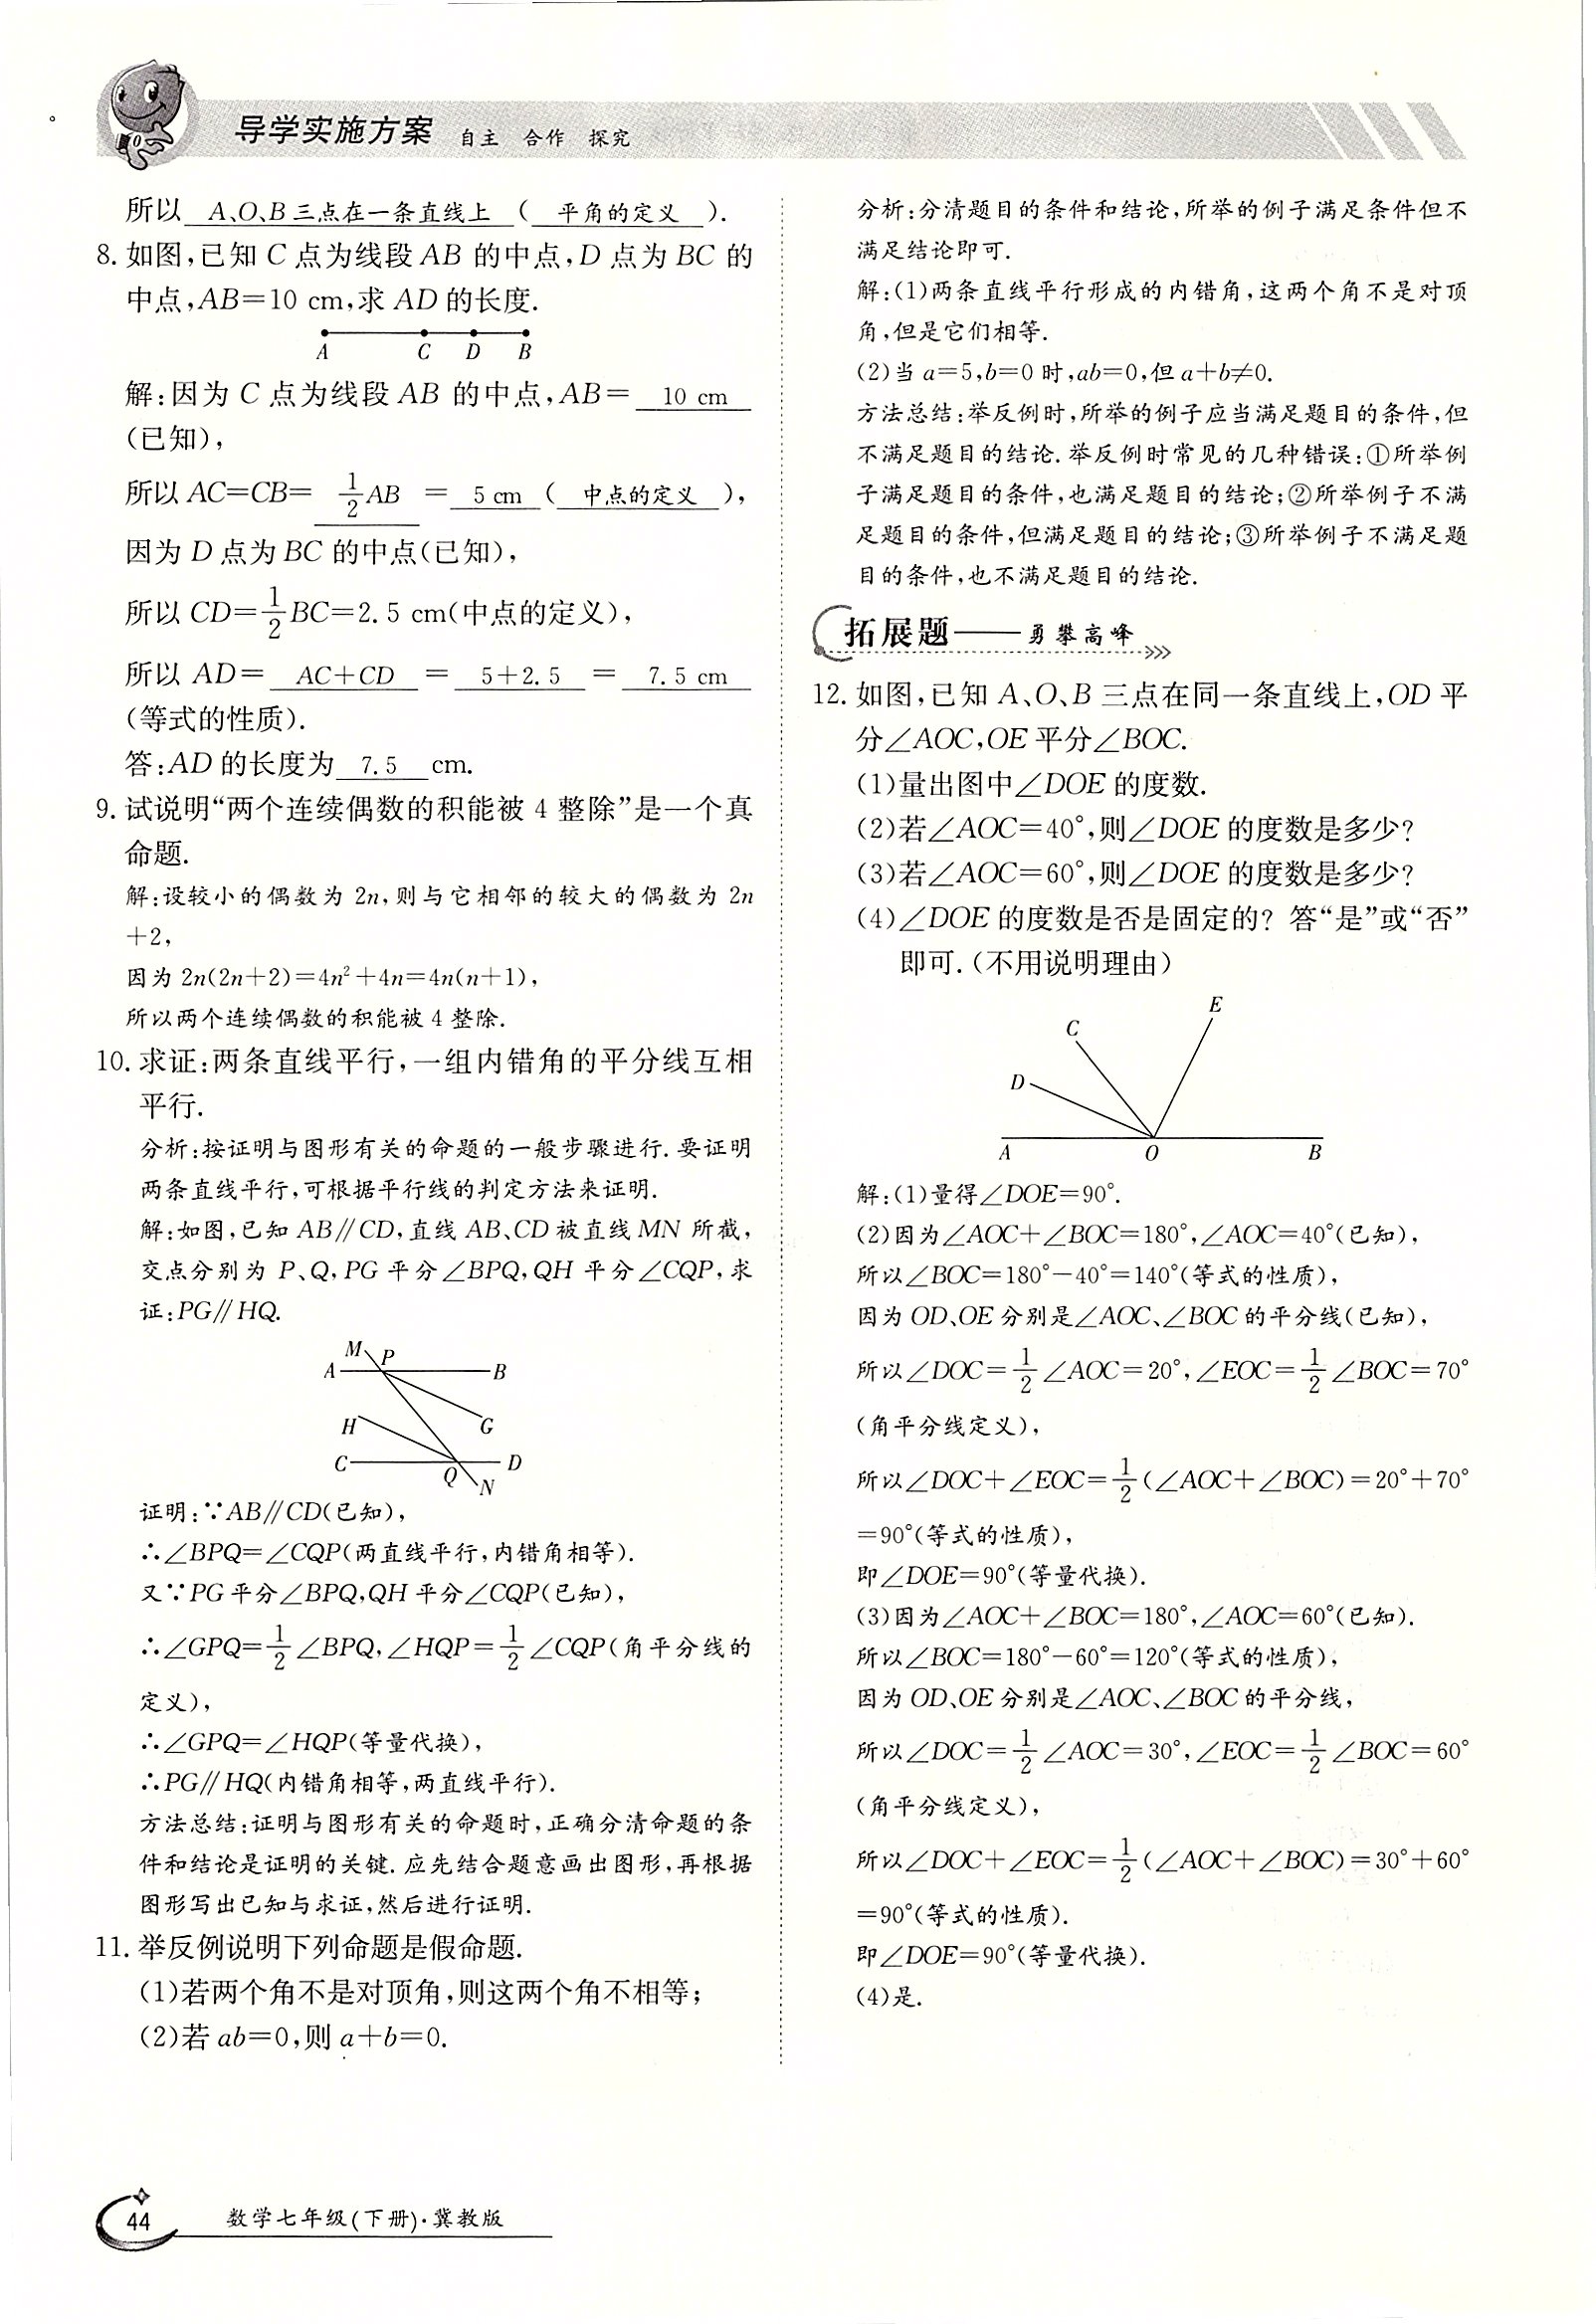 导学实施方案 自主 合作 探究
所以 A、O、B三点在一条直线上 ( 平角的定义 ).
8. 如图,已知 C 点为线段 AB 的中点,D 点为 BC 的
中点,AB=10 cm,求 AD 的长度.
A C D B
解:因为 C 点为线段 AB 的中点,AB= 10 cm
(已知),
所以 AC=CB= 1/2 AB = 5 cm ( 中点的定义 ),
因为 D 点为 BC 的中点(已知),
所以 CD=1/2 BC=2.5 cm(中点的定义),
所以 AD= AC+CD = 5+2.5 = 7.5 cm
(等式的性质).
答:AD 的长度为 7.5 cm.
9. 试说明“两个连续偶数的积能被 4 整除”是一个真
命题.
解:设较小的偶数为 2n,则与它相邻的较大的偶数为 2n
+2,
因为 2n(2n+2)=4n²+4n=4n(n+1),
所以两个连续偶数的积能被 4 整除.
10. 求证:两条直线平行,一组内错角的平分线互相
平行.
分析:按证明与图形有关的命题的一般步骤进行.要证明
两条直线平行,可根据平行线的判定方法来证明.
解:如图,已知 AB∥CD,直线 AB、CD 被直线 MN 所截,
交点分别为 P、Q,PG 平分∠BPQ,QH 平分∠CQP,求
证:PG∥HQ.
M P
A B
H G
C D
Q N
证明:∵AB∥CD(已知),
∴∠BPQ=∠CQP(两直线平行,内错角相等).
又∵PG 平分∠BPQ,QH 平分∠CQP(已知),
∴∠GPQ=1/2∠BPQ,∠HQP=1/2∠CQP(角平分线的
定义),
∴∠GPQ=∠HQP(等量代换),
∴PG∥HQ(内错角相等,两直线平行).
方法总结:证明与图形有关的命题时,正确分清命题的条
件和结论是证明的关键.应先结合题意画出图形,再根据
图形写出已知与求证,然后进行证明.
11. 举反例说明下列命题是假命题.
(1)若两个角不是对顶角,则这两个角不相等;
(2)若 ab=0,则 a+b=0.
分析:分清题目的条件和结论,所举的例子满足条件但不
满足结论即可.
解:(1)两条直线平行形成的内错角,这两个角不是对顶
角,但是它们相等.
(2)当 a=5,b=0 时,ab=0,但 a+b≠0.
方法总结:举反例时,所举的例子应当满足题目的条件,但
不满足题目的结论.举反例时常见的几种错误:①所举例
子满足题目的条件,也满足题目的结论;②所举例子不满
足题目的条件,但满足题目的结论;③所举例子不满足题
目的条件,也不满足题目的结论.
拓展题——勇攀高峰
12. 如图,已知 A、O、B 三点在同一条直线上,OD 平
分∠AOC,OE 平分∠BOC.
(1)量出图中∠DOE 的度数.
(2)若∠AOC=40°,则∠DOE 的度数是多少?
(3)若∠AOC=60°,则∠DOE 的度数是多少?
(4)∠DOE 的度数是否是固定的? 答“是”或“否”
即可.(不用说明理由)
E
C
D
A O B
解:(1)量得∠DOE=90°.
(2)因为∠AOC+∠BOC=180°,∠AOC=40°(已知),
所以∠BOC=180°-40°=140°(等式的性质),
因为 OD、OE 分别是∠AOC、∠BOC 的平分线(已知),
所以∠DOC=1/2∠AOC=20°,∠EOC=1/2∠BOC=70°
(角平分线定义),
所以∠DOC+∠EOC=1/2(∠AOC+∠BOC)=20°+70°
=90°(等式的性质),
即∠DOE=90°(等量代换).
(3)因为∠AOC+∠BOC=180°,∠AOC=60°(已知).
所以∠BOC=180°-60°=120°(等式的性质),
因为 OD、OE 分别是∠AOC、∠BOC 的平分线,
所以∠DOC=1/2∠AOC=30°,∠EOC=1/2∠BOC=60°
(角平分线定义),
所以∠DOC+∠EOC=1/2(∠AOC+∠BOC)=30°+60°
=90°(等式的性质).
即∠DOE=90°(等量代换).
(4)是.
44 数学七年级(下册)·冀教版